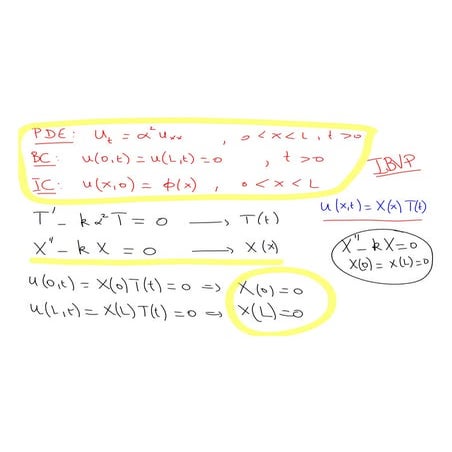 PDE: u_t = α² u_xx , 0 < x < L, t > 0
BC: u(0,t) = u(L,t) = 0 , t > 0
IC: u(x,0) = φ(x) , 0 < x < L
IBVP
u(x,t) = X(x) T(t)
T' − kα²T = 0 → T(t)
X'' − k X = 0 → X(x)
X'' − kX = 0
X(0) = X(L) = 0
u(0,t) = X(0) T(t) = 0 ⇒ X(0) = 0
u(L,t) = X(L) T(t) = 0 ⇒ X(L) = 0